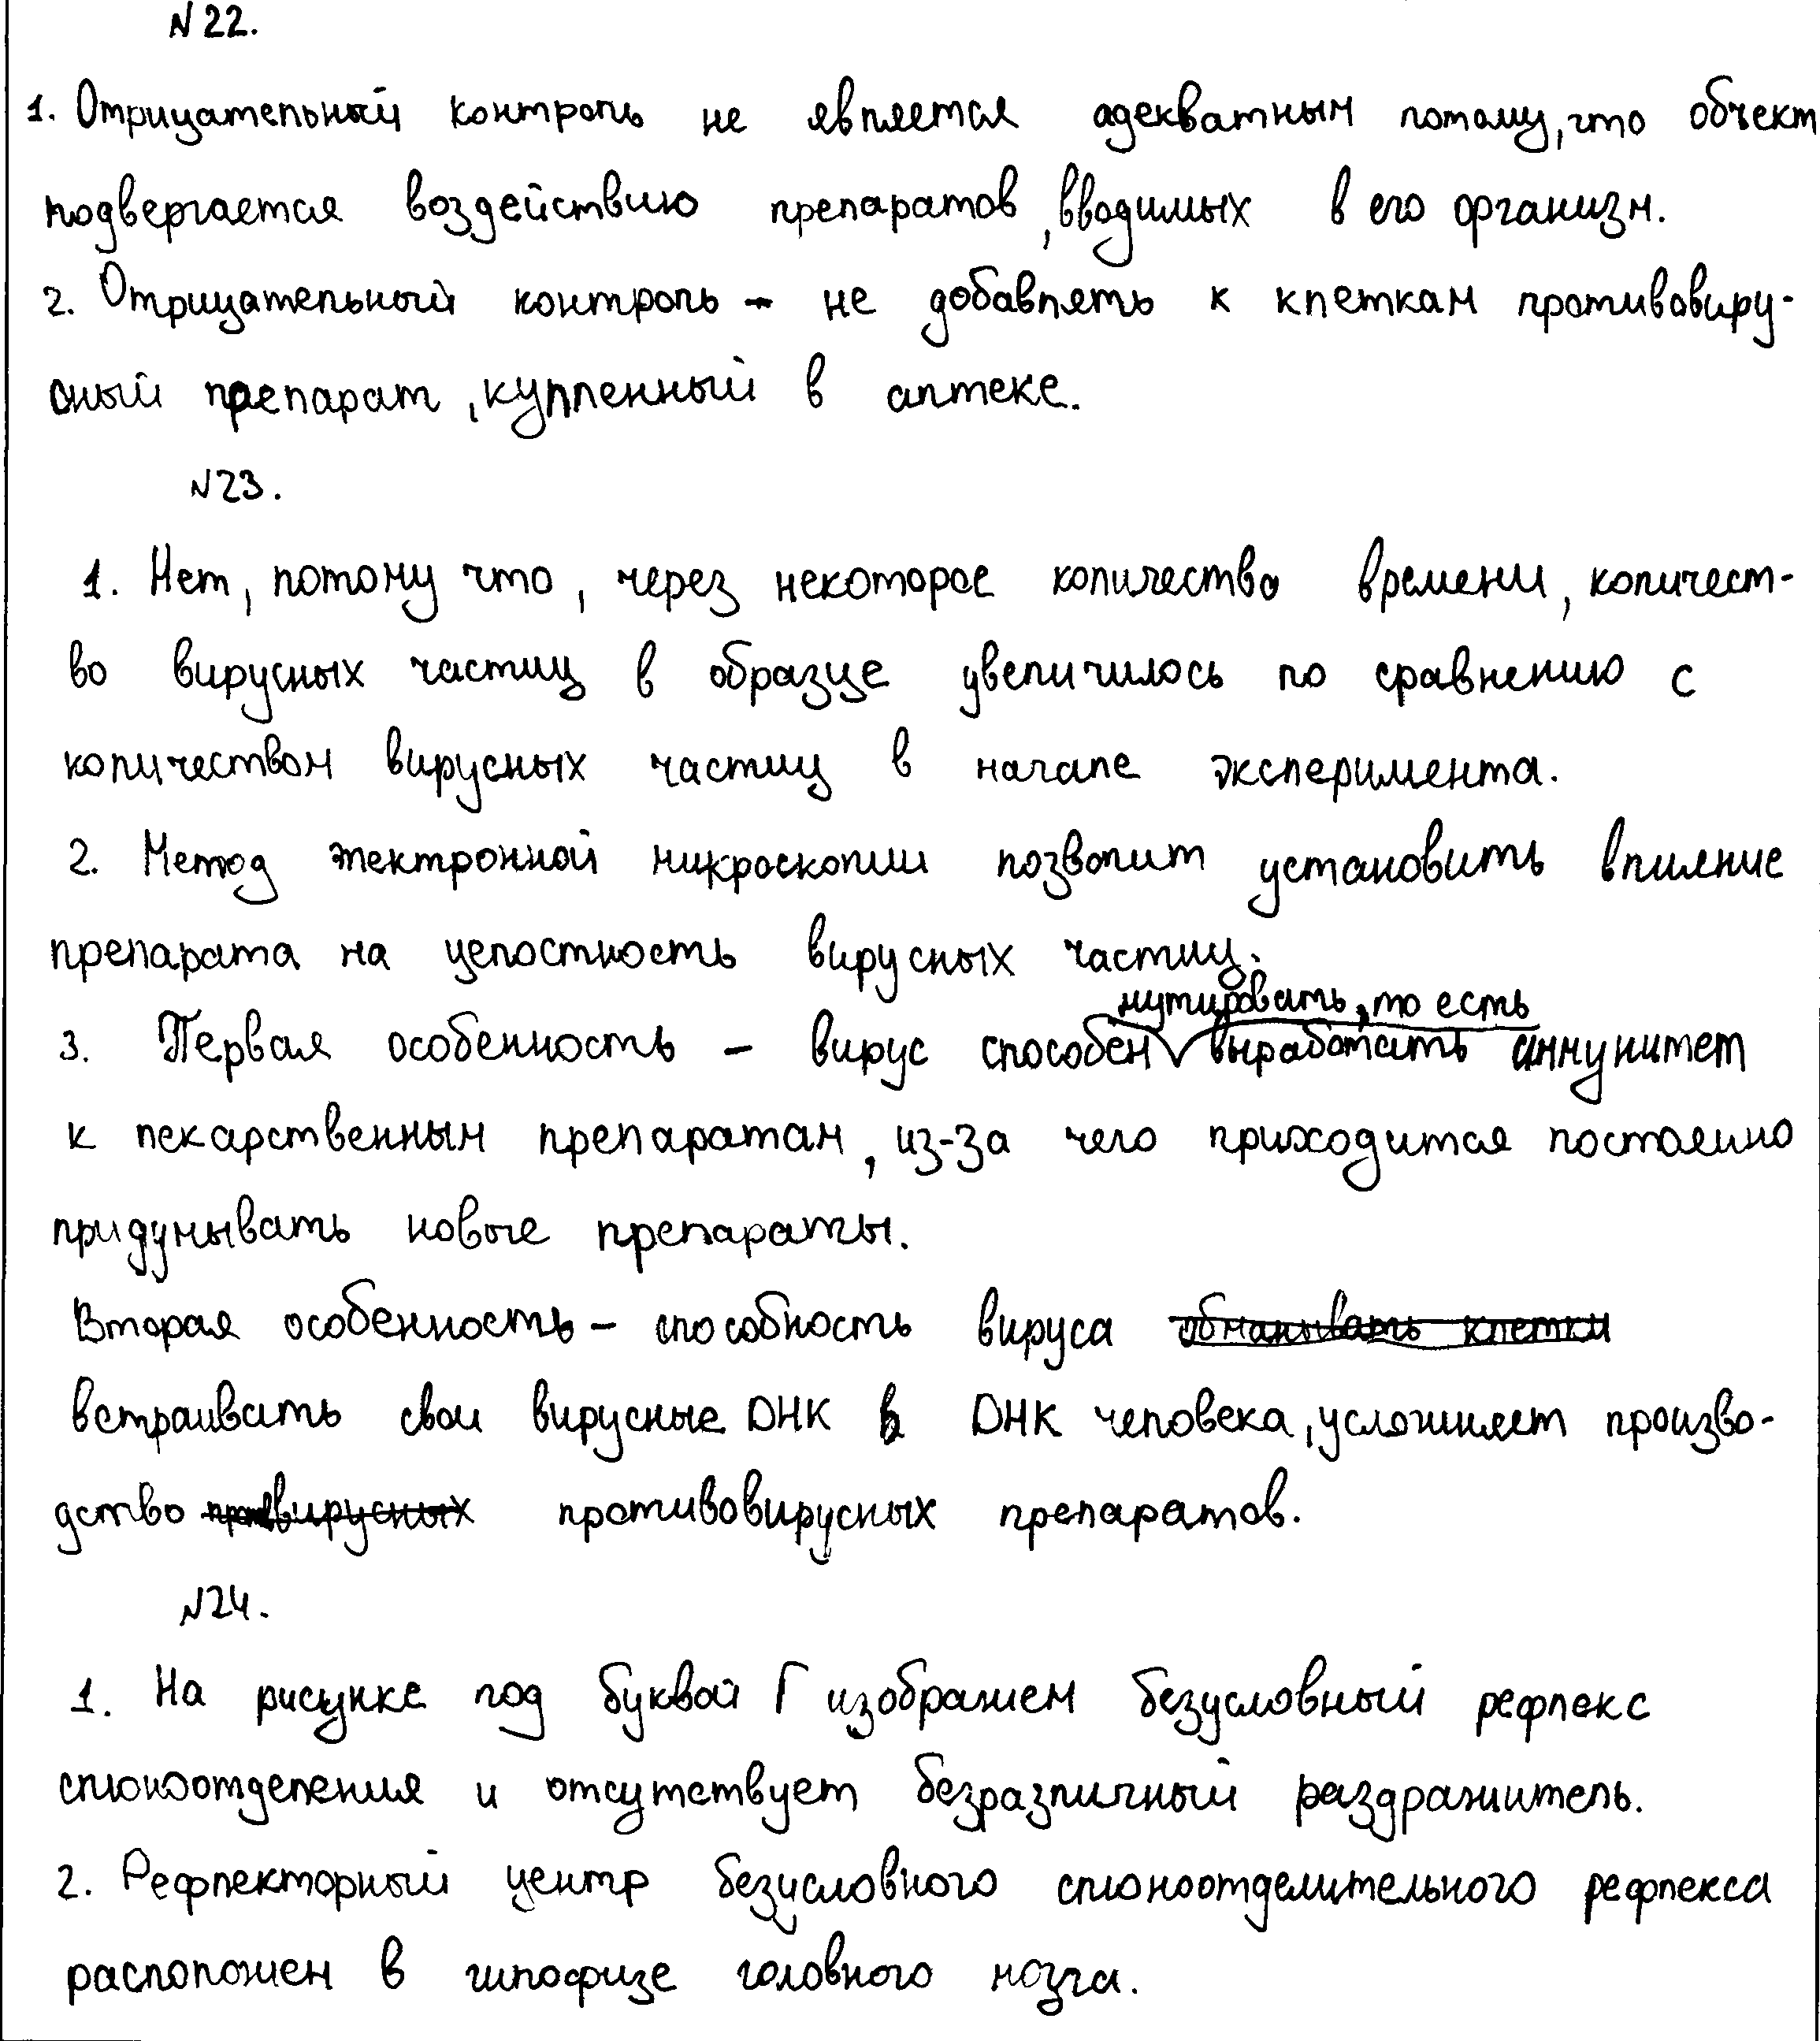 N 22.
1. Отрицательный контроль не является адекватным потому, что объект
подвергается воздействию препаратов, вводимых в его организм.
2. Отрицательный контроль - не добавлять к клеткам противовиру-
сный препарат, купленный в аптеке.
N23.
1. Нет, потому что, через некоторое количество времени, количест-
во вирусных частиц в образце увеличилось по сравнению с
количеством вирусных частиц в начале эксперимента.
2. Метод электронной микроскопии позволит установить влияние
препарата на целостность вирусных частиц.
мутировать, то есть
3. Первая особенность – вирус способен выработать иммунитет
к лекарственным препаратам, из-за чего приходится постоянно
придумывать новые препараты.
Вторая особенность – способность вируса обманывать клетки
встраивать свои вирусные ДНК в ДНК человека, усложняет произво-
дство противовирусных препаратов.
N24.
1. На рисунке под буквой Г изображен безусловный рефлекс
слюноотделения и отсутствует безразличный раздражитель.
2. Рефлекторный центр безусловного слюноотделительного рефлекса
расположен в гипофизе головного мозга.